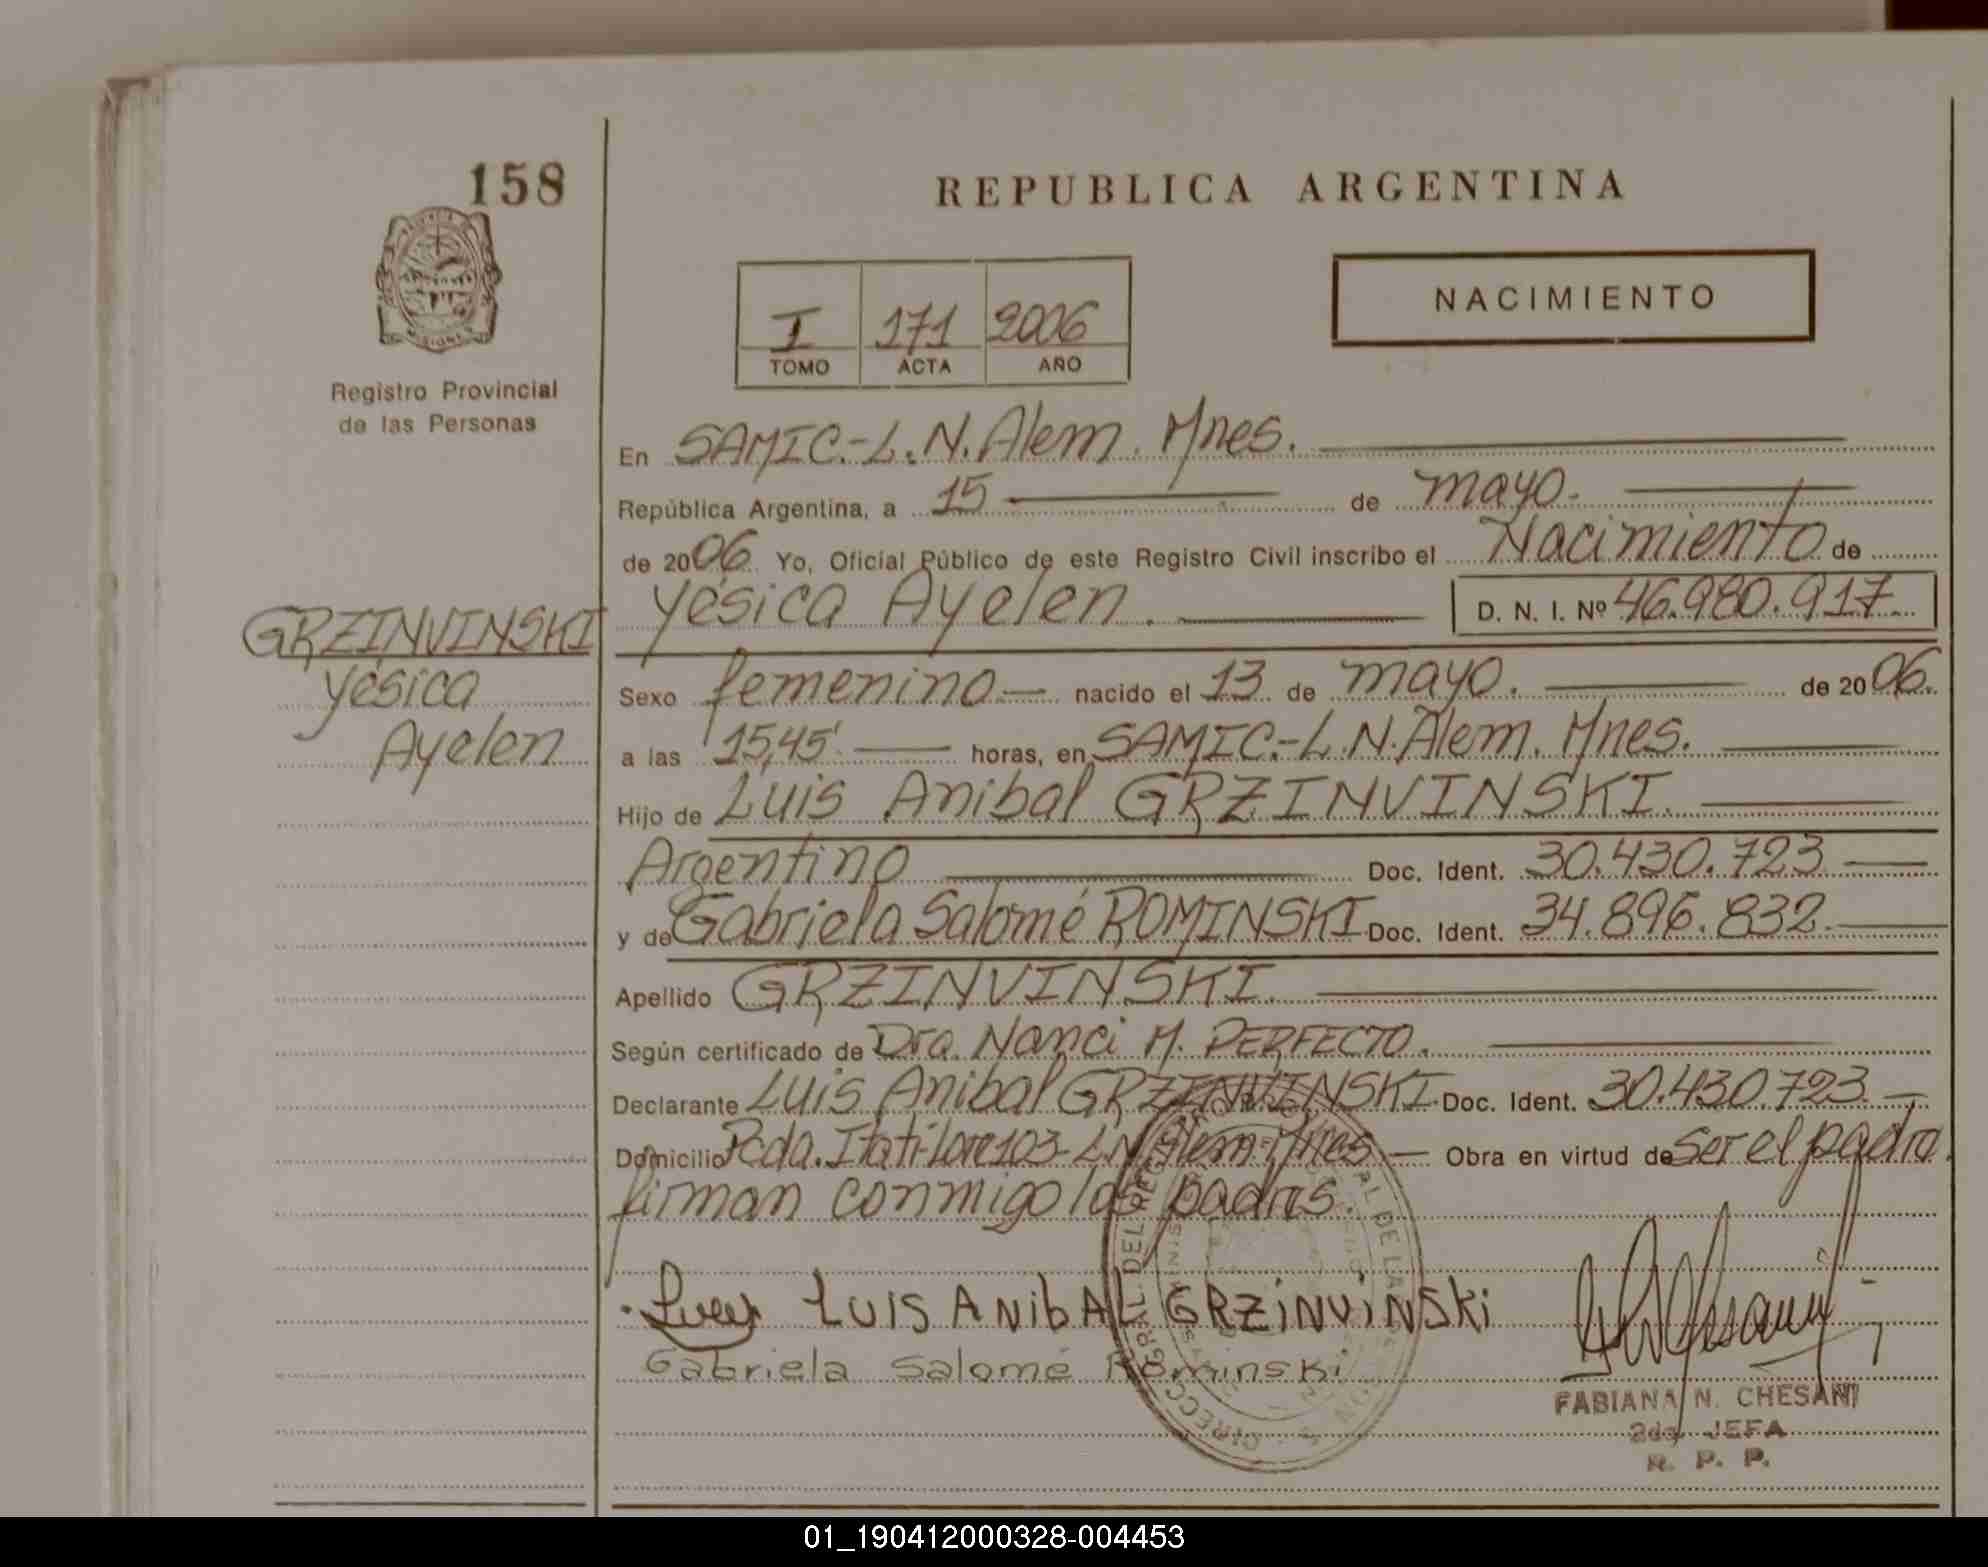 158
REPUBLICA ARGENTINA
NACIMIENTO
I 171 2006
TOMO ACTA AÑO
Registro Provincial
de las Personas
En SAMIC.-L.N.Alem. Mnes.
República Argentina, a 15 de mayo.
de 2006 Yo, Oficial Público de este Registro Civil inscribo el Nacimiento de
Yésica Ayelen. D. N. I. Nº 46.980.917
GRZINVINSKI
Yésica
Ayelen
Sexo femenino nacido el 13 de mayo. de 2006.
a las 15,45' horas, en SAMIC.-L.N.Alem. Mnes.
Hijo de Luis Anibal GRZINVINSKI.
Argentino Doc. Ident. 30.430.723
y de Gabriela Salomé ROMINSKI Doc. Ident. 34.896.832.
Apellido GRZINVINSKI.
Según certificado de Dra. Nanci M. PERFECTO.
Declarante Luis Anibal GRZINVINSKI Doc. Ident. 30.430.723.
Domicilio Pcda. Itati-Lote 103-L.N.Alem-Mnes Obra en virtud de ser el padre.
firman conmigo los padres.
LUIS ANIBAL GRZINVINSKI
Gabriela Salomé Rominski
FABIANA N. CHESANI
2da. JEFA
R. P. P.
01_190412000328-004453